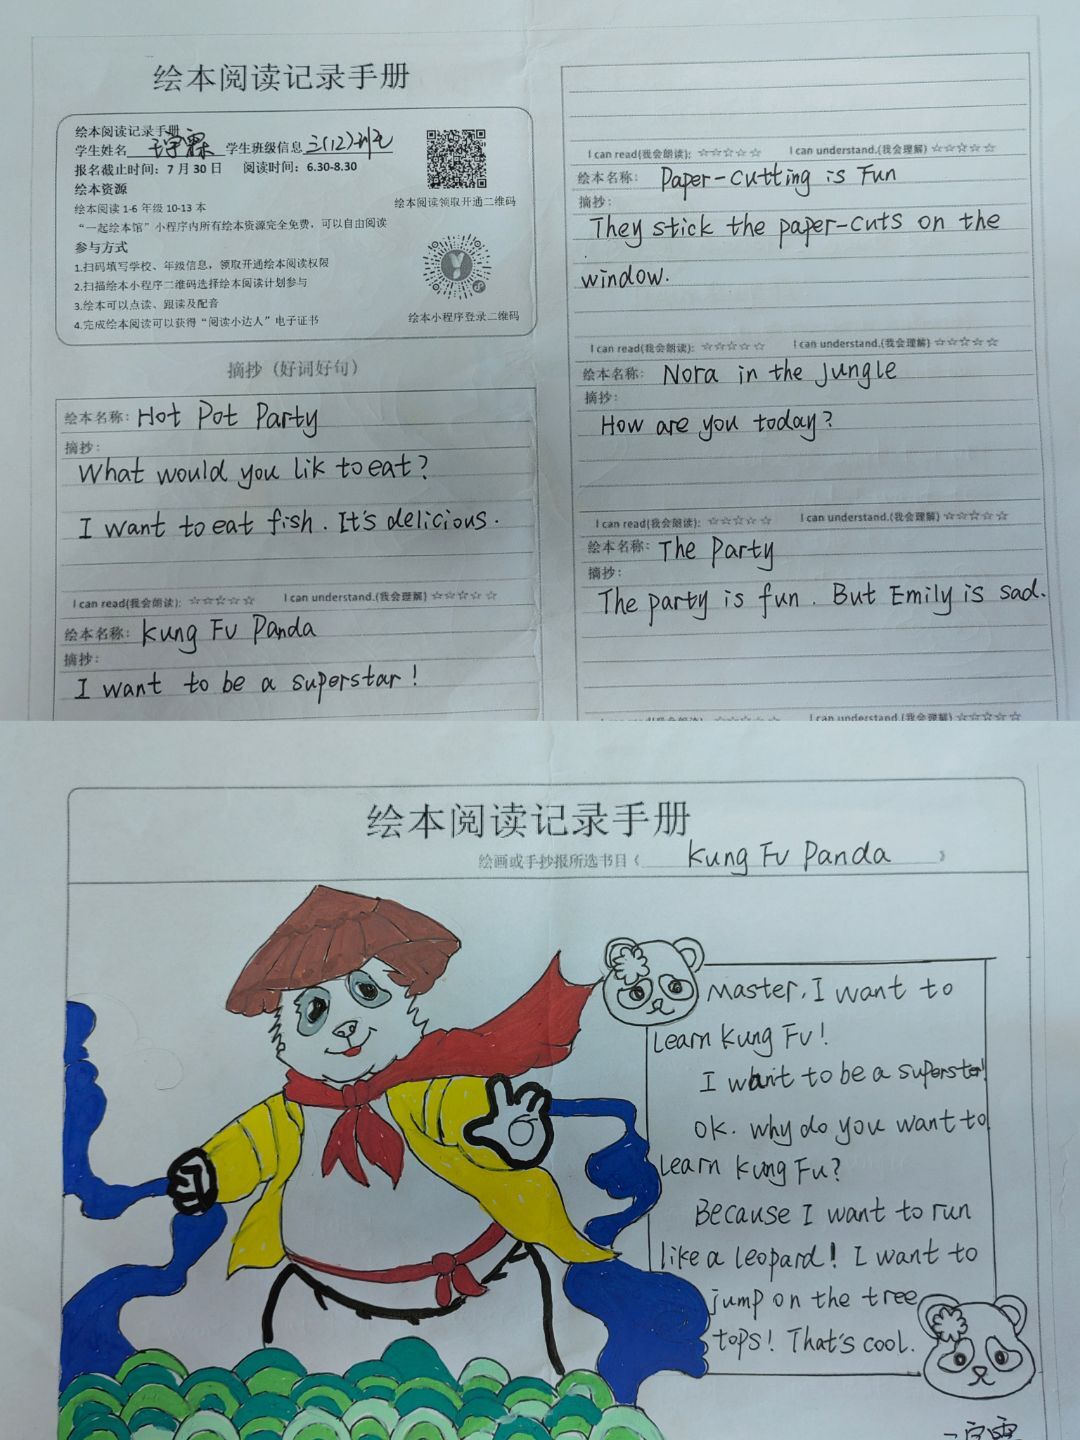 绘本阅读记录手册
绘本阅读记录手册
学生姓名 学生班级信息 三(12)班
报名截止时间：7 月 30 日 阅读时间：6.30-8.30
绘本资源
绘本阅读 1-6 年级 10-13 本
“一起绘本馆”小程序内所有绘本资源完全免费，可以自由阅读
参与方式
1.扫码填写学校、年级信息，领取开通绘本阅读权限
2.扫描绘本小程序二维码选择绘本阅读计划参与
3.绘本可以点读、跟读及配音
4.完成绘本阅读可以获得“阅读小达人”电子证书
绘本阅读领取开通二维码
绘本小程序登录二维码
摘抄（好词好句）
绘本名称：Hot Pot Party
摘抄：
What would you lik to eat?
I want to eat fish. It's delicious.
I can read(我会朗读)：☆☆☆☆☆ I can understand.(我会理解) ☆☆☆☆☆
绘本名称：Kung Fu Panda
摘抄：
I want to be a superstar!
I can read(我会朗读)：☆☆☆☆☆ I can understand.(我会理解) ☆☆☆☆☆
绘本名称：Paper-cutting is Fun
摘抄：
They stick the paper-cuts on the
window.
I can read(我会朗读)：☆☆☆☆☆ I can understand.(我会理解) ☆☆☆☆☆
绘本名称：Nora in the jungle
摘抄：
How are you today?
I can read(我会朗读)：☆☆☆☆☆ I can understand.(我会理解) ☆☆☆☆☆
绘本名称：The Party
摘抄：
The party is fun. But Emily is sad.
I can read(我会朗读)：☆☆☆☆☆ I can understand.(我会理解) ☆☆☆☆☆
绘本阅读记录手册
绘画或手抄报所选书目《 Kung Fu Panda 》
Master, I want to
learn kung Fu!
I want to be a superstar!
OK. why do you want to
learn kung Fu?
Because I want to run
like a leopard! I want to
jump on the tree
tops! That's cool.